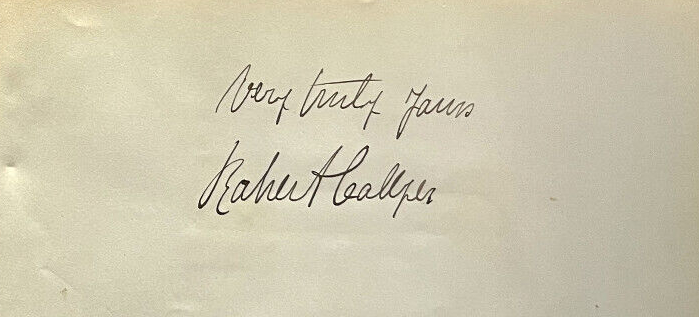 Very truly yours
Robert Collyer